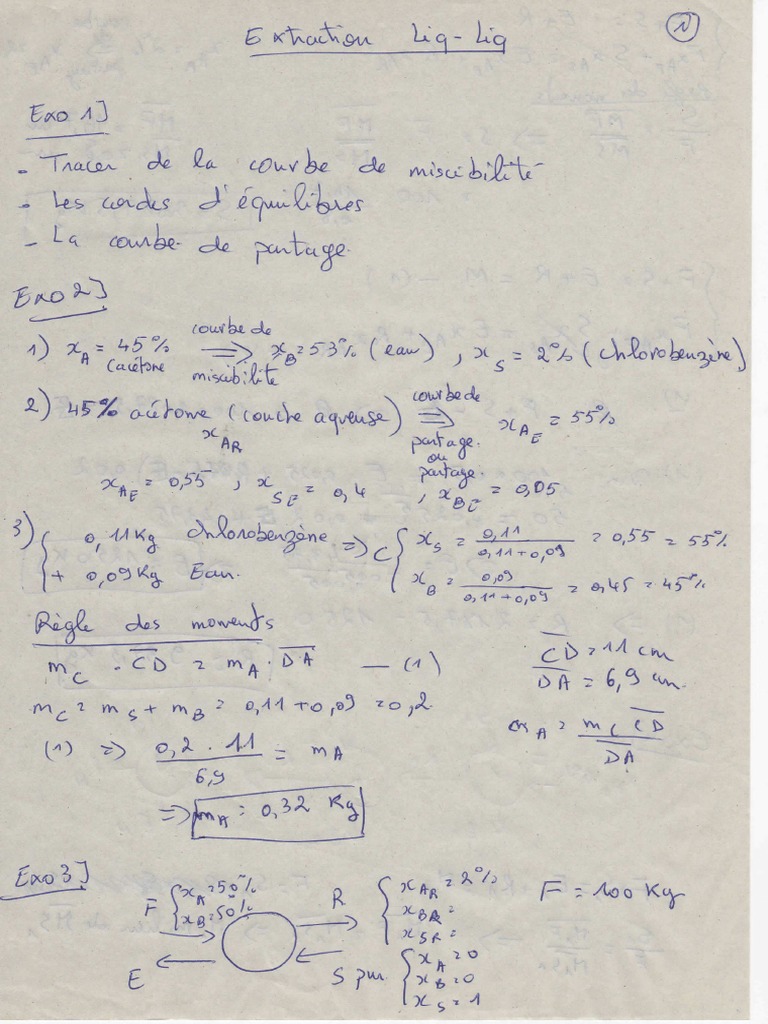 Extraction Liq-Liq
1
Exo 1]
- Tracer de la courbe de miscibilité
- Les cordes d'équilibres
- La courbe de partage.
Exo 2]
1) x_A = 45% (acétone) courbe de miscibilité ⟹ x_B = 53% (eau), x_S = 2% (chlorobenzène)
2) 45% acétone (couche aqueuse) x_AR courbe de partage ⟹ x_AE = 55%
ou partage.
x_AE = 0,55, x_SE = 0,4, x_BE = 0,05
3) { 0,11 Kg chlorobenzène ⟹ C { x_S = 0,11 / (0,11+0,09) = 0,55 = 55%
+ 0,09 Kg Eau. x_B = 0,09 / (0,11+0,09) = 0,45 = 45%
Règle des moments
m_C . CD = m_A . DA — (1)
CD = 11 cm
DA = 6,9 cm.
m_C = m_S + m_B = 0,11 + 0,09 = 0,2.
m_A = m_C CD / DA
(1) ⟹ 0,2 . 11 / 6,9 = m_A
⟹ m_A = 0,32 Kg
Exo 3]
F { x_A = 50% x_B = 50%
R { x_AR = 2% x_BR = x_SR =
F = 100 Kg
E
S pur { x_A = 0 x_B = 0 x_S = 1